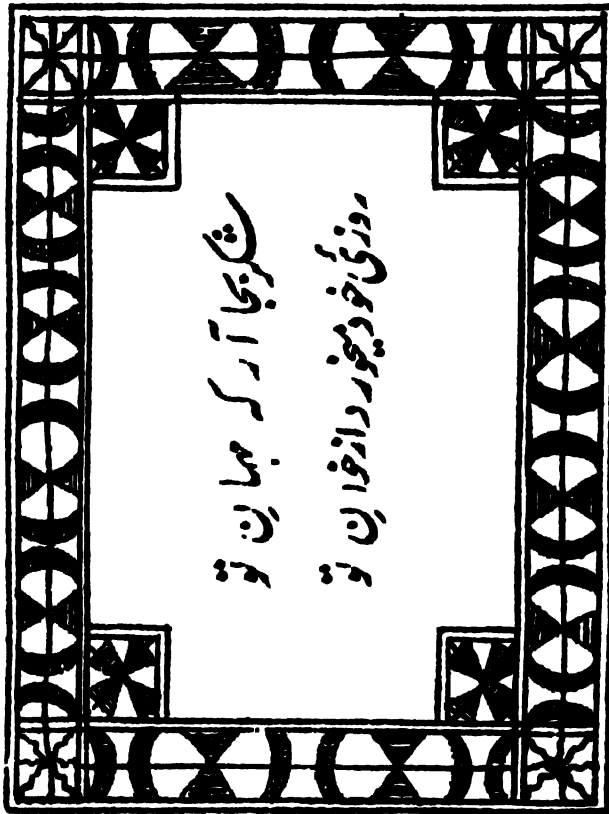 شکر بجا آر کہ مہمانِ تو
روزئ خود میخورد از خوانِ تو